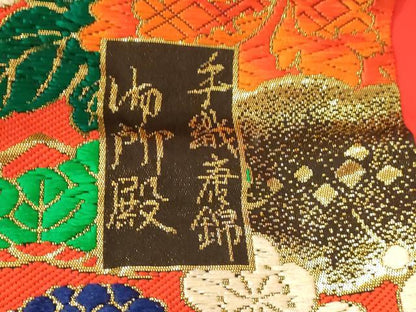 手織唐錦
御所殿